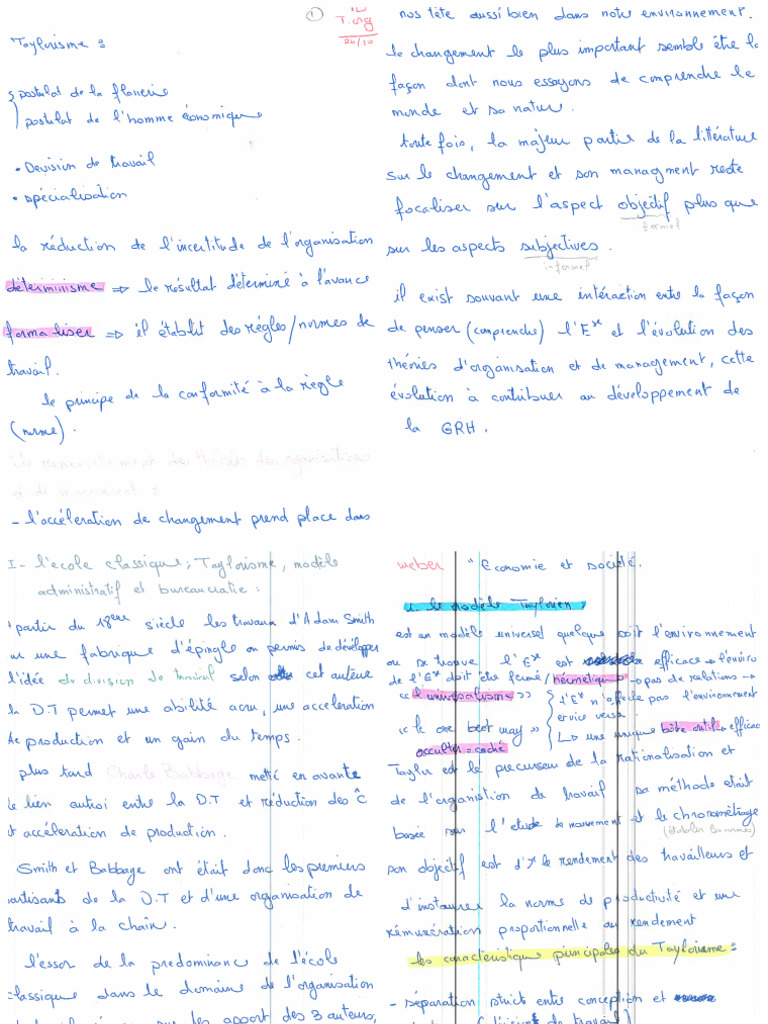 ①
T.org
24/10
Taylorisme :
postulat de la flanerie
postulat de l'homme économique
• Devision de travail
• spécialisation
la réduction de l'incertitude de l'organisation
déterminisme ⇒ le résultat déterminé à l'avance
formaliser ⇒ il établit des régles/normes de
travail.
le principe de la conformité à la règle
(norme).
des théories des organisations
et de :
- l'accéleration de changement prend place dans
nos tête aussi bien dans notre environnement.
le changement le plus important semble être la
façon dont nous essayons de comprendre le
monde et sa nature.
toute fois, la majeur partie de la littérature
sur le changement et son managment reste
focaliser sur l'aspect objectif plus que
formel
sur les aspects subjectives.
i-formel
il exist souvant une intéraction entre la façon
de penser (comprendre) l'Eˣ et l'évolution des
théories d'organisation et de management, cette
évolution à contribuer au développement de
la GRH.
I- l'école classique; Taylorisme, modèle
administratif et bureaucratie :
partir du 18ème siécle les travaux d'Adam Smith
sur une fabrique d'épingle on permis de développer
l'idée du division de travail selon cet auteur
la D.T permet une abilité acru, une acceleration
de production et un gain du temps.
plus tard Charle Babbage metté en avante
le lien autroi entre la D.T et réduction des C
et accéleration de production.
Smith et Babbage ont était donc les premiers
partisants de la D.T et d'une organisation de
travail à la chain.
l'essor de la predominance de l'école
classique dans le domaine de l'organisation
sur les apport des 3 auteurs,
weber "Economie et société.
1. le modèle Taylorien,
est un modèle universel quelque soit l'environnement
ou se trouve l'Eˣ est efficace → l'enviro
de l'Eˣ doit être fermé/hérmetique → pas de relations →
<< l'universalisme >> l'Eˣ n'affecte pas l'environnement
et vice versa
<< le one best way >> ↳ une unique efficace
occulter = caché
Taylor est le precurseur de la rationalisation et
de l'organistion de travail sa méthode etait
basée sur l'etude de mouvement et le chronométrage
(établer les normes)
son objectif est d'↗ le rendement des travailleurs et
d'instaurer la norme de productivité et une
rémunération proportionnelle au rendement
les caractéristique principales du Taylorisme :
- séparation strict entre conception et